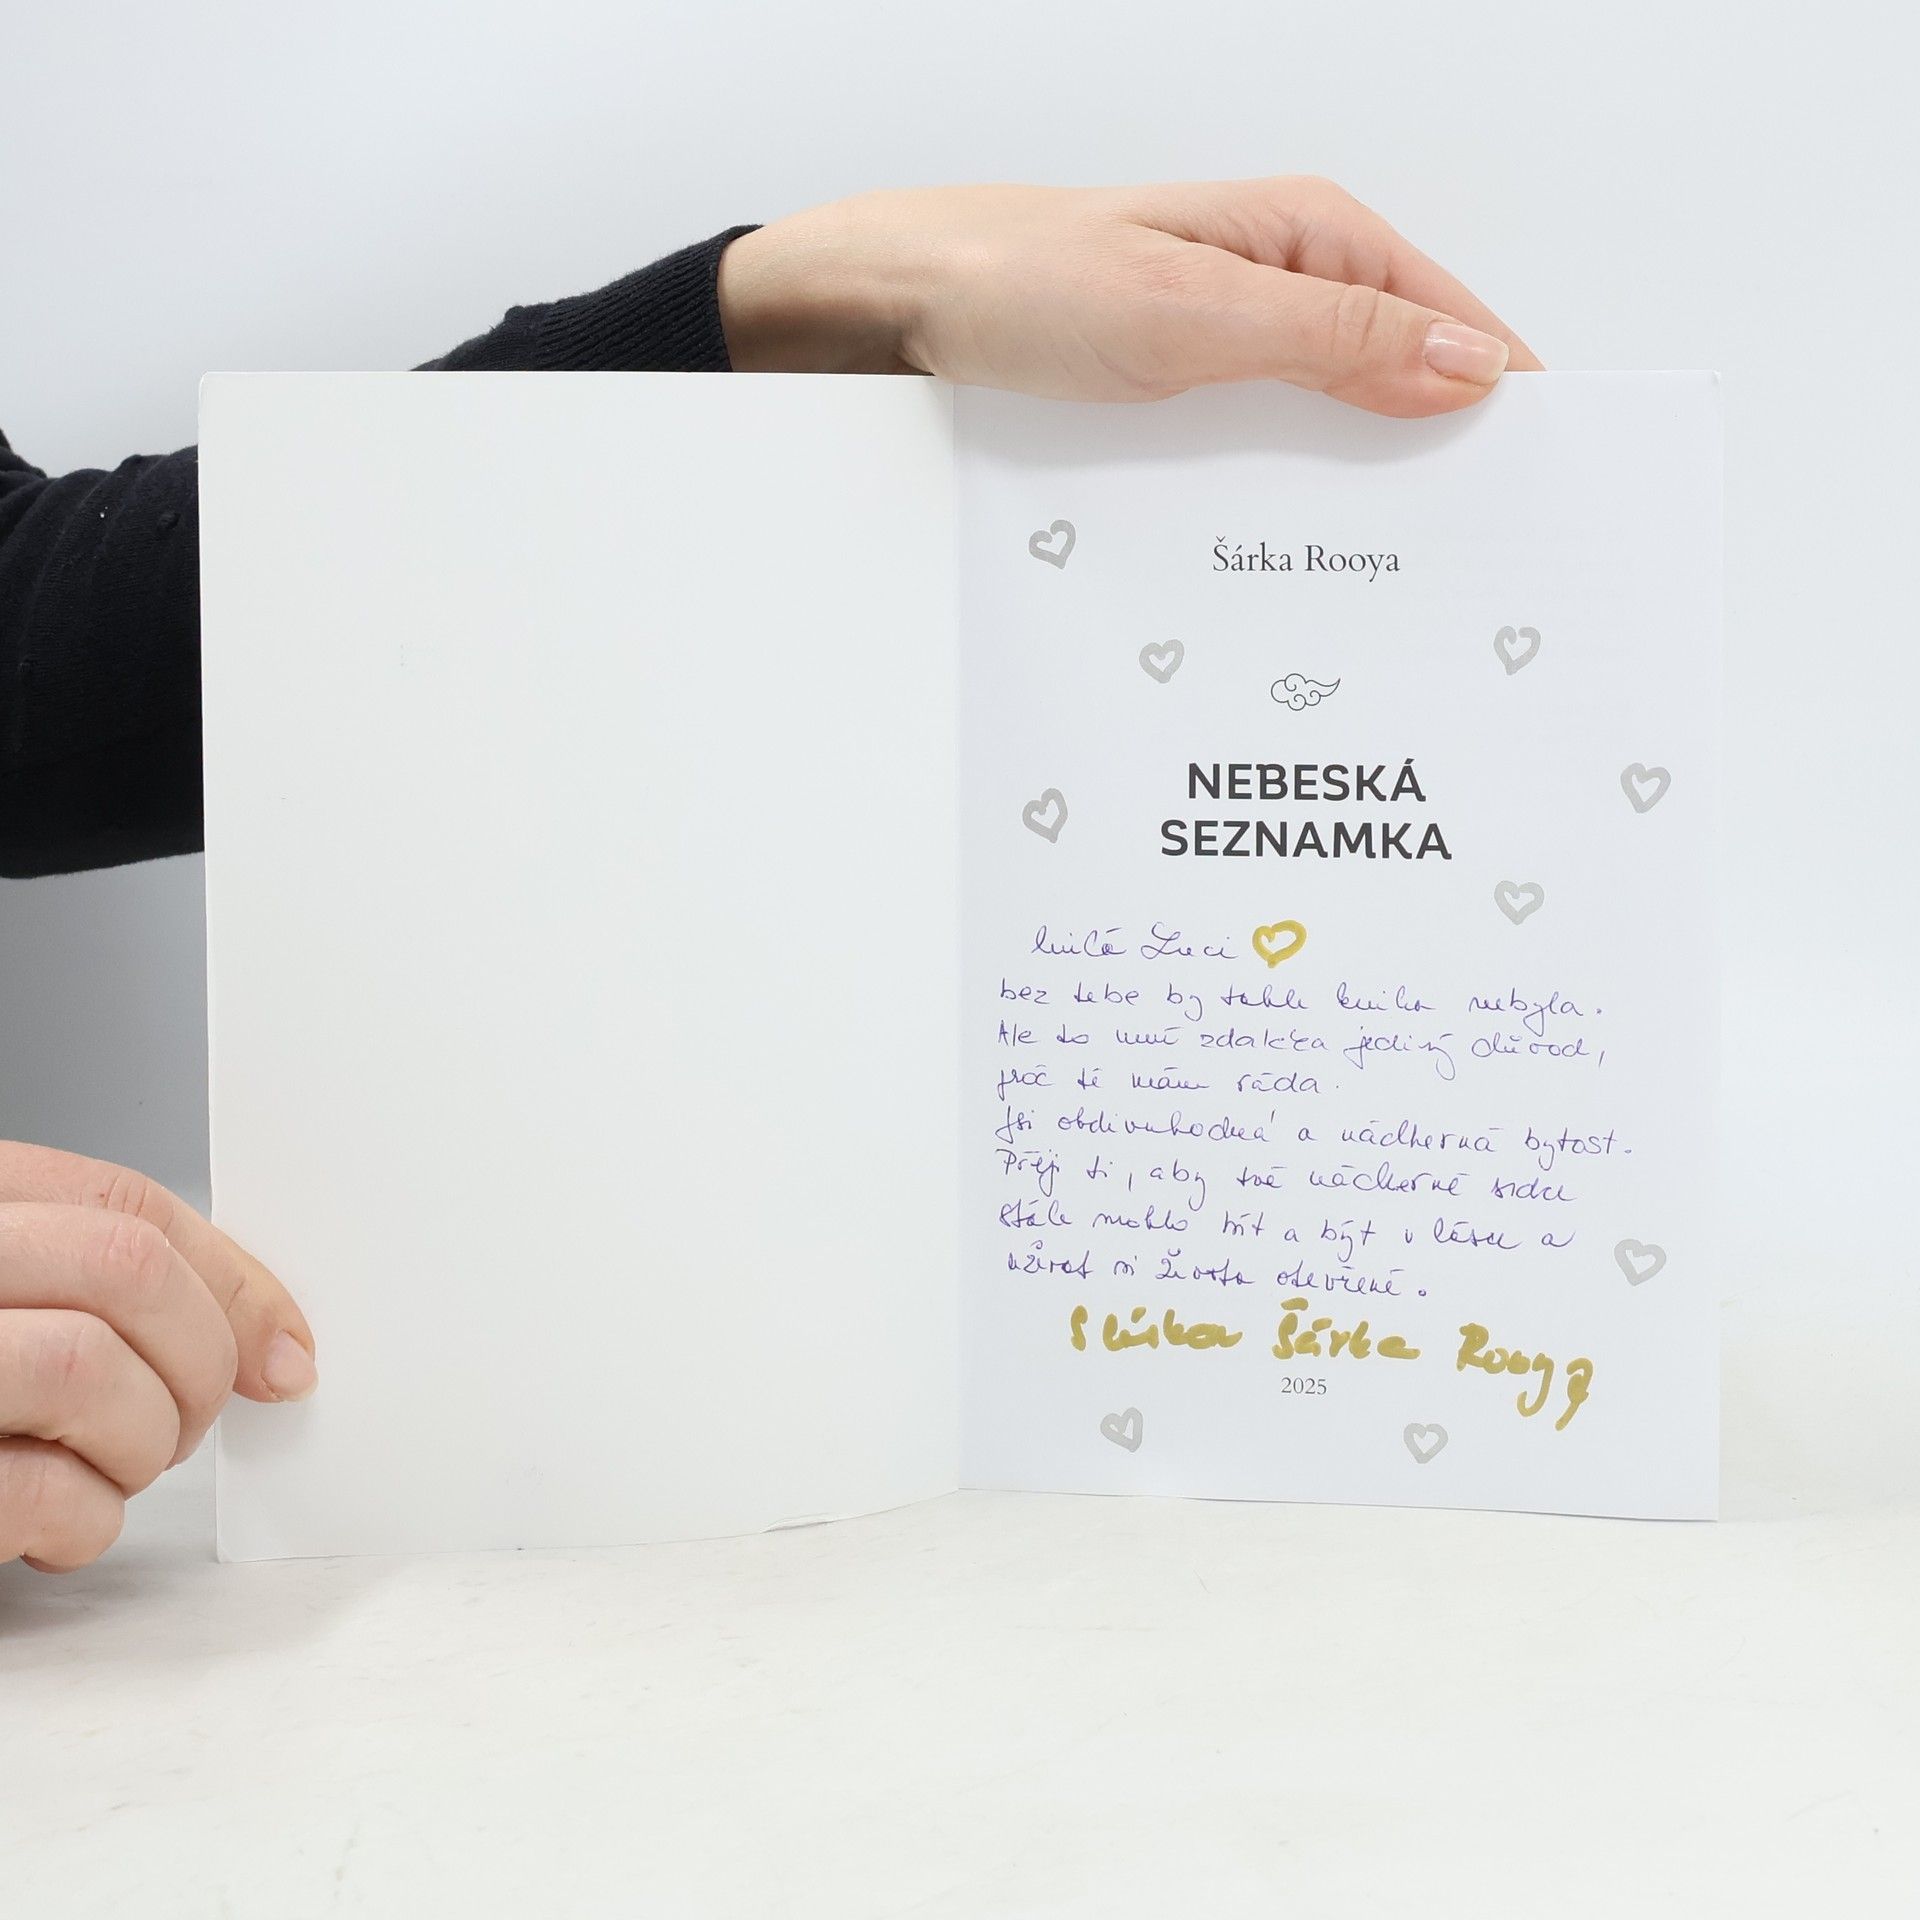 Šárka Rooya
NEBESKÁ
SEZNAMKA
Milá Luci
bez tebe by tahle kniha nebyla.
Ale to není zdaleka jediný důvod,
proč tě mám ráda.
Jsi obdivuhodná a nádherná bytost.
Přeji ti, aby tvé nádherné srdce
stále mohlo bít a být v lásce a
užívat si života otevřeně.
S láskou Šárka Rooya
2025